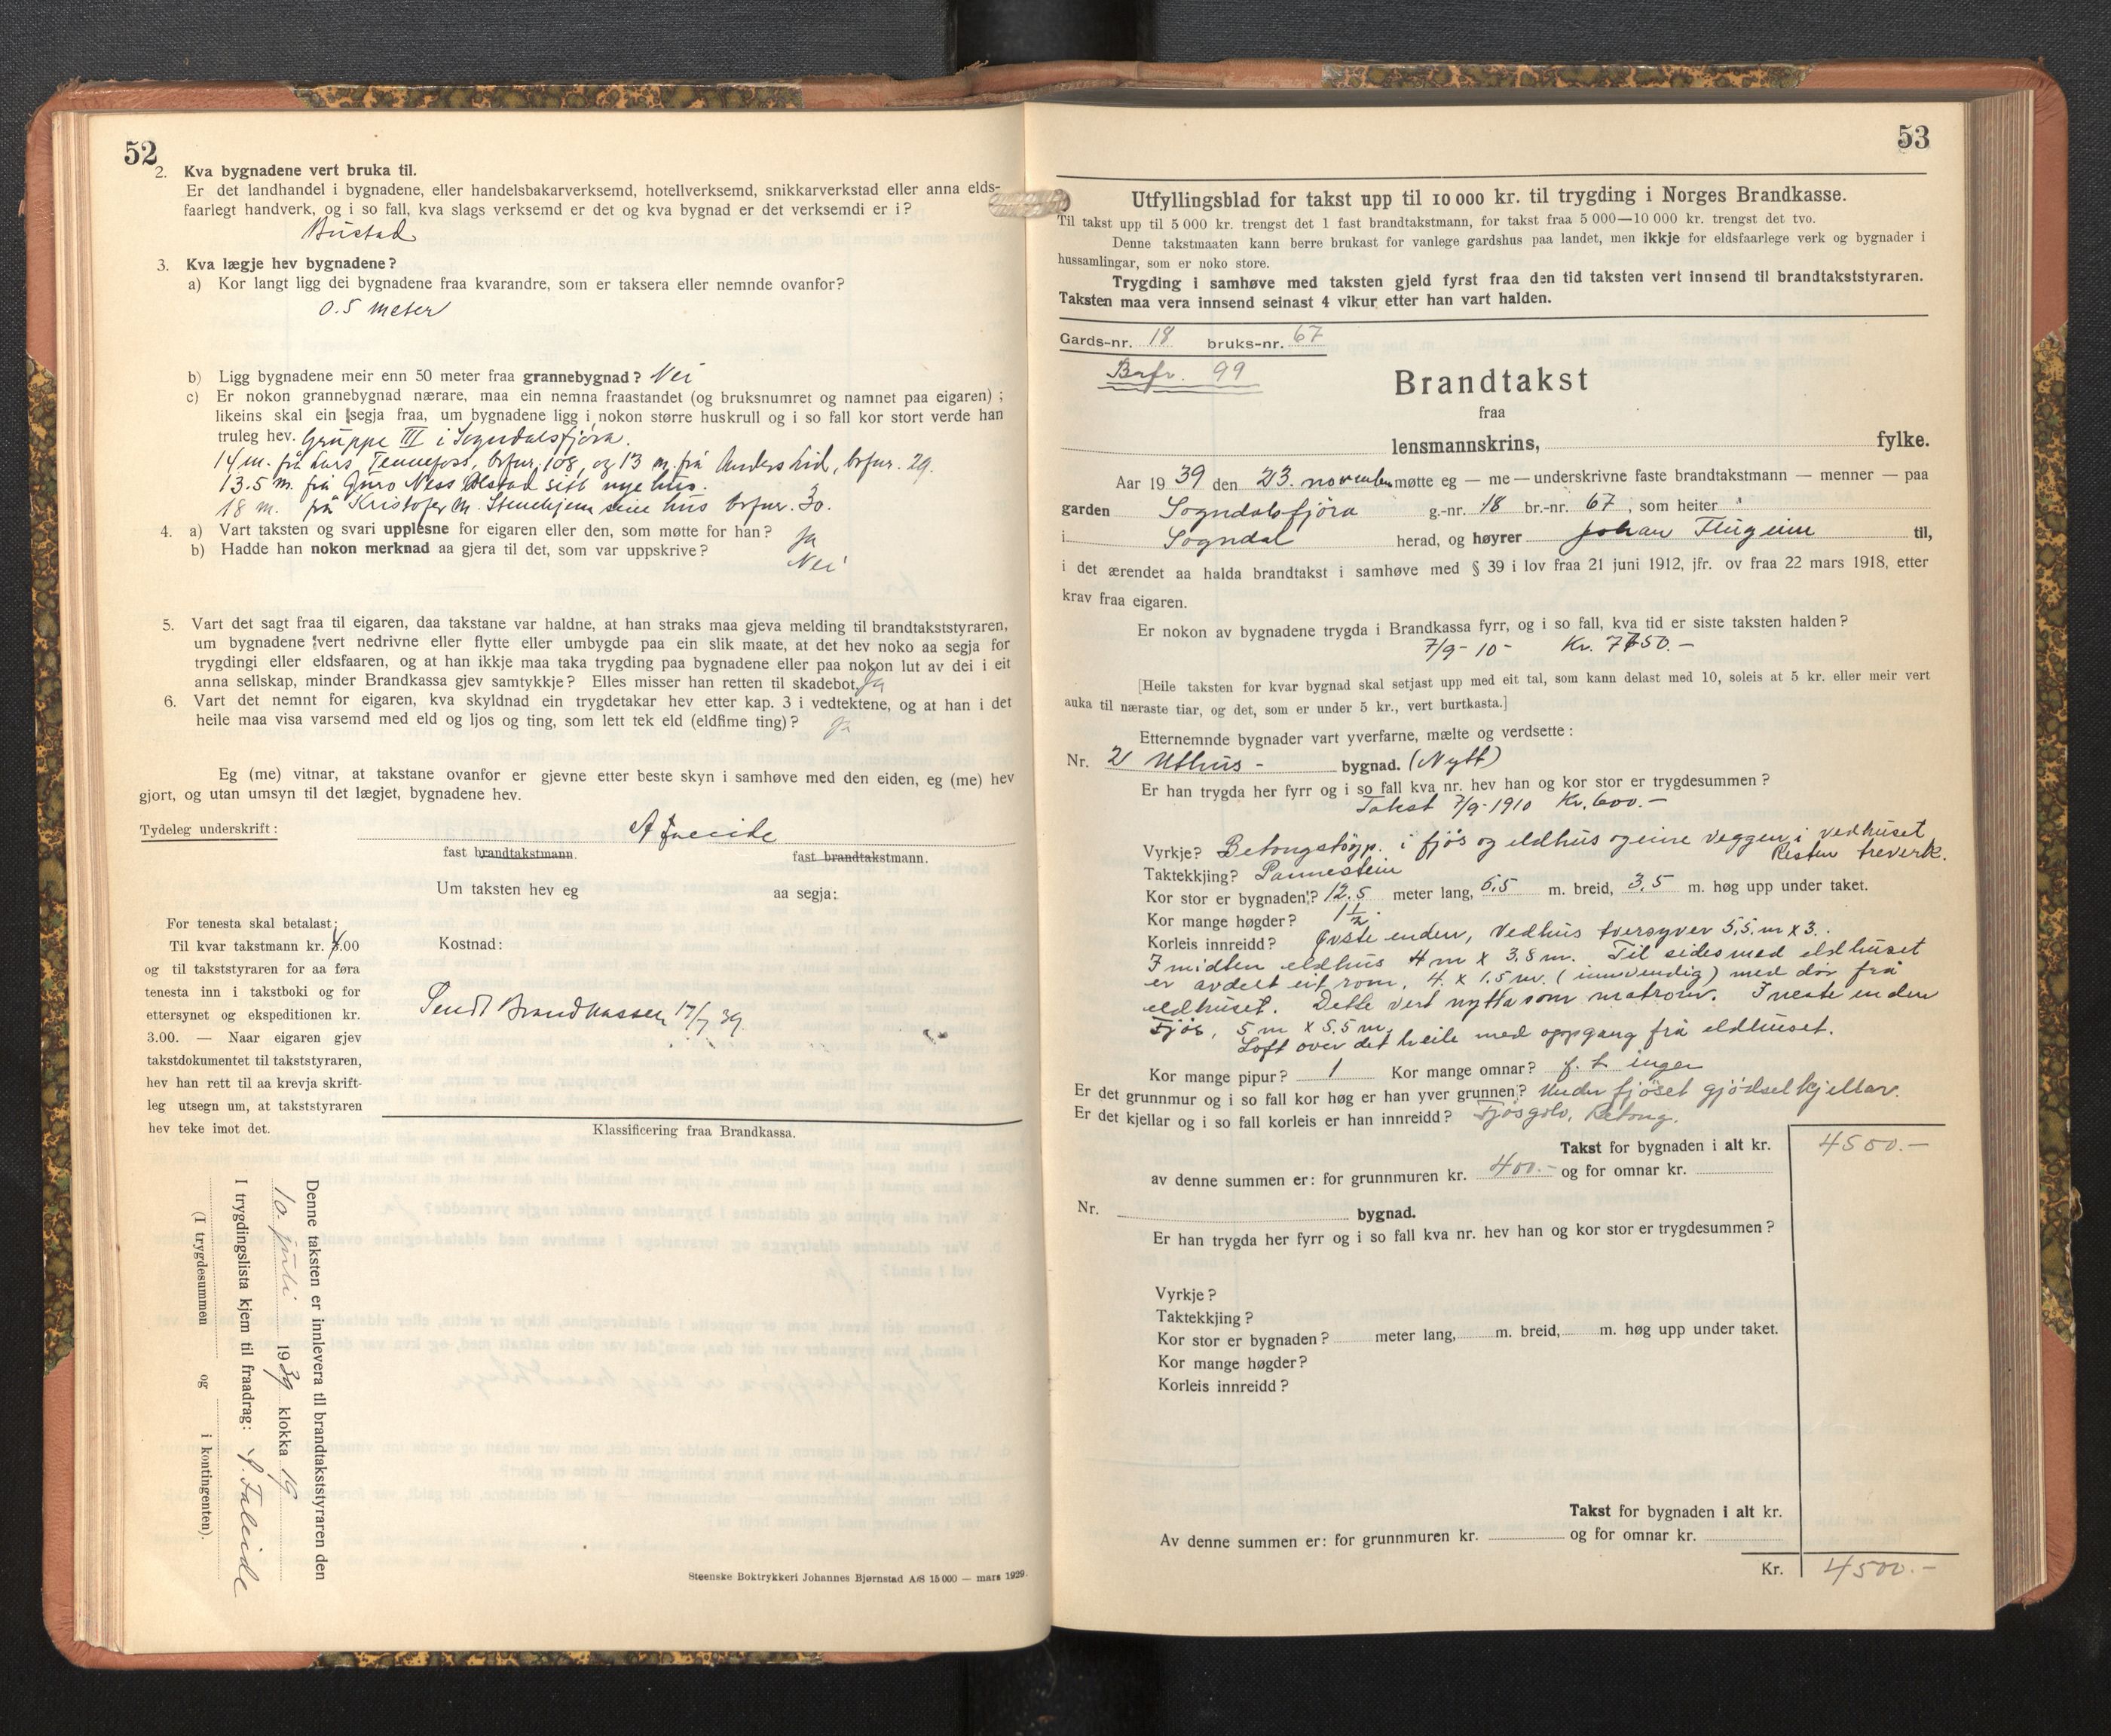 52
2. Kva bygnadene vert bruka til.
Er det landhandel i bygnadene, eller handelsbakarverksemd, hotellverksemd, snikkarverkstad eller anna elds-
faarlegt handverk, og i so fall, kva slags verksemd er det og kva bygnad er det verksemdi er i?
Bustad
3. Kva lægje hev bygnadene?
a) Kor langt ligg dei bygnadene fraa kvarandre, som er taksera eller nemnde ovanfor?
0.5 meter
b) Ligg bygnadene meir enn 50 meter fraa grannebygnad? Nei
c) Er nokon grannebygnad nærare, maa ein nemna fraastandet (og bruksnumret og namnet paa eigaren);
likeins skal ein segja fraa, um bygnadene ligg i nokon større huskrull og i so fall kor stort verde han
truleg hev. Gruppe III i Sogndalsfjøra.
14 m. frå Lars Tennefoss, brfnr. 108, og 13 m. frå Anders Lid, brfnr. 29.
13.5 m. frå Guro Ness Ølstad sitt nye hus.
18 m. frå Kristofer M. Stenehjem sine hus brfnr. 30.
4. a) Vart taksten og svari upplesne for eigaren eller den, som møtte for han? Ja
b) Hadde han nokon merknad aa gjera til det, som var uppskrive? Nei
5. Vart det sagt fraa til eigaren, daa takstane var haldne, at han straks maa gjeva melding til brandtakststyraren,
um bygnadene vert nedrivne eller flytte eller umbygde paa ein slik maate, at det hev noko aa segja for
trygdingi eller eldsfaaren, og at han ikkje maa taka trygding paa bygnadene eller paa nokon lut av dei i eit
anna sellskap, minder Brandkassa gjev samtykkje? Elles misser han retten til skadebot. Ja
6. Vart det nemnt for eigaren, kva skyldnad ein trygdetakar hev etter kap. 3 i vedtektene, og at han i det
heile maa visa varsemd med eld og ljos og ting, som lett tek eld (eldfime ting)? Ja
Eg (me) vitnar, at takstane ovanfor er gjevne etter beste skyn i samhøve med den eiden, eg (me) hev
gjort, og utan umsyn til det lægjet, bygnadene hev.
Tydeleg underskrift: A Faleide
fast brandtakstmann. fast brandtakstmann.
Um taksten hev eg aa segja:
For tenesta skal betalast:
Til kvar takstmann kr. 4.00
og til takststyraren for aa føra
tenesta inn i takstboki og for
ettersynet og ekspeditionen kr.
3.00. — Naar eigaren gjev
takstdokumentet til takststyraren,
hev han rett til aa krevja skrift-
leg utsegn um, at takststyraren
hev teke imot det.
Kostnad:
Sendt Brandkassen 17/7 39.
Klassificering fraa Brandkassa.
Denne taksten er innlevera til brandtakststyraren den
10. juli 1939 klokka 19
I trygdingslista kjem til fraadrag: A. Faleide
(I trygdesummen og i kontingenten).
Steenske Boktrykkeri Johannes Bjørnstad A/S 15 000 — mars 1929.
53
Utfyllingsblad for takst upp til 10 000 kr. til trygding i Norges Brandkasse.
Til takst upp til 5 000 kr. trengst det 1 fast brandtakstmann, for takst fraa 5 000—10 000 kr. trengst det tvo.
Denne takstmaaten kann berre brukast for vanlege gardshus paa landet, men ikkje for eldsfaarlege verk og bygnader i
hussamlingar, som er noko store.
Trygding i samhøve med taksten gjeld fyrst fraa den tid taksten vert innsend til brandtakststyraren.
Taksten maa vera innsend seinast 4 vikur etter han vart halden.
Gards-nr. 18 bruks-nr. 67
Brfr. 99
Brandtakst
fraa
lensmannskrins, fylke.
Aar 1939 den 23. november møtte eg — me — underskrivne faste brandtakstmann — menner — paa
garden Sogndalsfjöra g.-nr. 18 br.-nr. 67, som heiter "
i Sogndal herad, og høyrer Johan Flugeim til,
i det ærendet aa halda brandtakst i samhøve med § 39 i lov fraa 21 juni 1912, jfr. ov fraa 22 mars 1918, etter
krav fraa eigaren.
Er nokon av bygnadene trygda i Brandkassa fyrr, og i so fall, kva tid er siste taksten halden?
7/9-10- Kr. 7750.-
[Heile taksten for kvar bygnad skal setjast upp med eit tal, som kann delast med 10, soleis at 5 kr. eller meir vert
auka til næraste tiar, og det, som er under 5 kr., vert burtkasta.]
Etternemnde bygnader vart yverfarne, mælte og verdsette:
Nr. 2 Uthus - bygnad. (Nytt)
Er han trygda her fyrr og i so fall kva nr. hev han og kor stor er trygdesummen?
Takst 7/9-1910 Kr. 600.-
Vyrkje? Betongstöpp. i fjös og eldhus og eine veggen i vedhuset
Resten treverk.
Taktekkjing? Pannestein
Kor stor er bygnaden? 12.5 meter lang, 6.5 m. breid, 3.5 m. høg upp under taket.
Kor mange høgder? 1½.
Korleis innreidd? Øvste enden, vedhus tversyver 5,5. m x 3.
I midten eldhus 4 m x 3.8 m. Til sides med eldhuset
er avdelt eit rom, 4. x 1.5 m. (innvendig) med dør frå
eldhuset. Dette vert nytta som matrom. I neste enden
Fjös, 5 m x 5.5 m.
Loft over det heile med oppgang frå eldhuset.
Kor mange pipur? 1 Kor mange omnar? f. t. ingen
Er det grunnmur og i so fall kor høg er han yver grunnen? Under fjöset gjödselkjellar.
Er det kjellar og i so fall korleis er han innreidd? Fjösgolv, Betong.
Takst for bygnaden i alt kr. 4500.-
av denne summen er: for grunnmuren kr. 400.- og for omnar kr.
Nr. bygnad.
Er han trygda her fyrr og i so fall kva nr. hev han og kor stor er trygdesummen?
Vyrkje?
Taktekkjing?
Kor stor er bygnaden? meter lang, m. breid, m. høg upp under taket.
Kor mange høgder?
Korleis innreidd?
Takst for bygnaden i alt kr.
Av denne summen er: for grunnmuren kr. og for omnar kr.
Kr. 4500.-